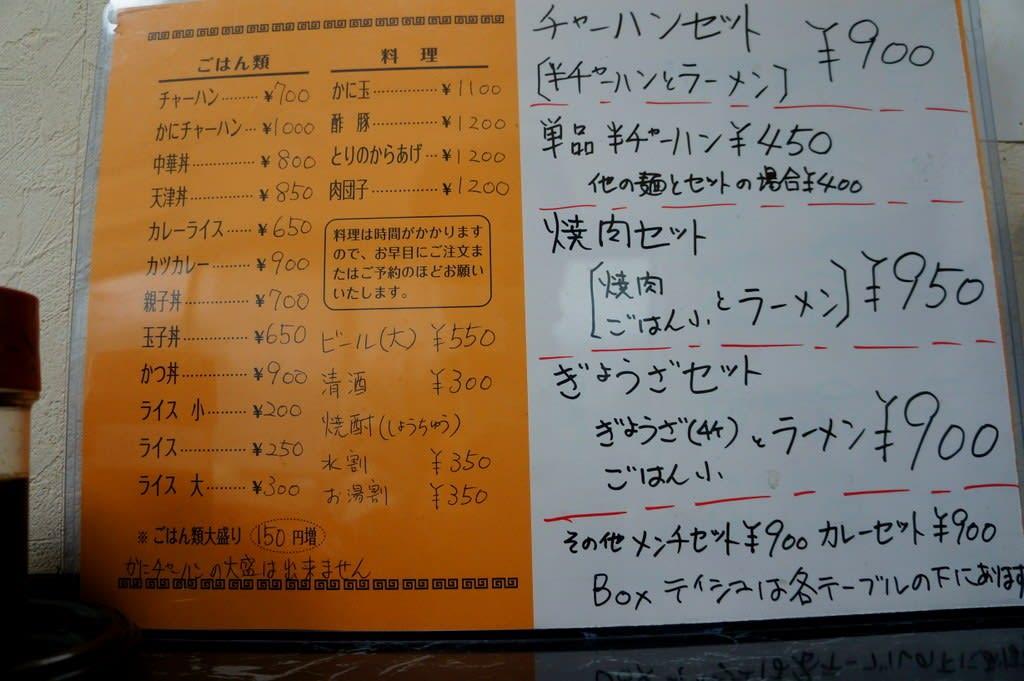 ごはん類
チャーハン………¥700
かにチャーハン…¥1000
中華丼……………¥800
天津丼……………¥850
カレーライス……¥650
カツカレー………¥900
親子丼……………¥700
玉子丼……………¥650
かつ丼……………¥900
ライス 小…………¥200
ライス……………¥250
ライス 大…………¥300
※ ごはん類大盛り 150円増
かにチャーハンの大盛は出来ません
料理
かに玉……………¥1100
酢豚………………¥1200
とりのからあげ…¥1200
肉団子……………¥1200
料理は時間がかかります
ので、お早目にご注文ま
たはご予約のほどお願い
いたします。
ビール(大) ¥550
清酒 ¥300
焼酎(しょうちゅう)
水割 ¥350
お湯割 ¥350
チャーハンセット ¥900
[半チャーハンとラーメン]
単品 半チャーハン ¥450
他の麺とセットの場合¥400
焼肉セット
[焼肉
ごはん小 とラーメン] ¥950
ぎょうざセット
ぎょうざ(4ケ) とラーメン ¥900
ごはん小
その他 メンチセット¥900 カレーセット ¥900
Box ティシュは各テーブルの下にあります